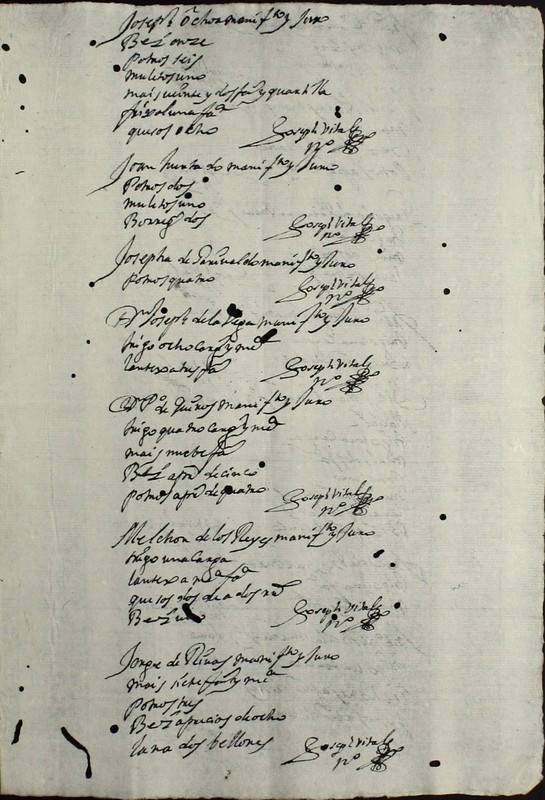 Joseph Ochoa manifto y Juro
Bez onze
Potros seis
muletos uno
mais veinte y dos fas y quartilla
frixol una fa
quesos ocho
Joseph Vitales
no
Joan hurtado manifto y Juro
Potros dos
muletos uno
Borregos dos
Joseph Vitales
no
Josepha de manifto y Juro
Potros quatro
Joseph Vitales
no
Joseph de la Vega manifto y Juro
trigo ocho cargas y ma
lantexa tres fas
Joseph Vitales
no
Dn Po de quiros manifto y Juro
trigo quatro cargas y ma
mais nuebe fas
Bez apro de cinco
Potros apro de quatro
Joseph Vitales
no
Melchor de los Reyes manifto y Juro
trigo una carga
lantexa ma fa
quesos dos de a dos rs
Bez
Joseph Vitales
no
Jorge de Rivas manifto y Juro
mais siete fas y ma
Potros tres
Bez aprecios de ocho
lana dos bellones
Joseph Vitales
no